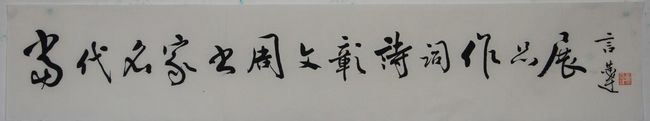 當代名家書周文彰詩詞作品展
言恭達